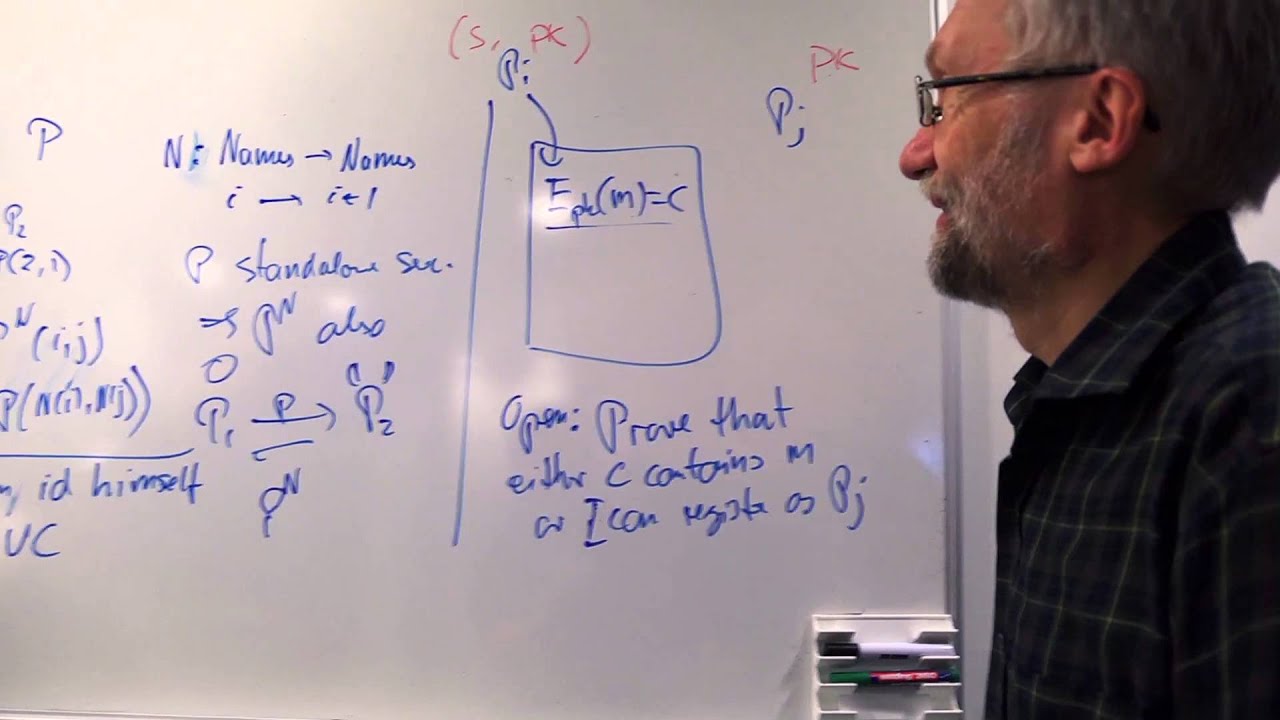 P
P₂
P(2,1)
N(i,j)
P(N(i), N(j))
id himself
UC
N: Names → Names
i → i+1
P standalone sec.
⇒ Pᴺ also
P₁ P → "P₂"
Pᴺ
(S, PK)
Pi
E_pk(m)=C
PK
Pj
Open: Prove that
either C contains m
or I can register as Pj